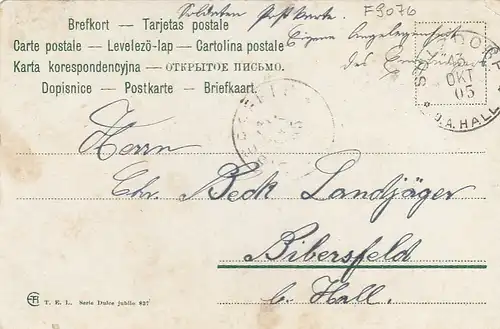 Soldaten Postkarte.
F9076
Eigene Angelegenheit
des Empfängers
Brefkort — Tarjetas postale
Carte postale — Levelezö-lap — Cartolina postale
Karta korespondencyjna — ОТКРЫТОЕ ПИСЬМО.
Dopisnice — Postkarte — Briefkaart.
OKT
05
O.A. HALL
Herrn
Chr. Beck Landjäger
Bibersfeld
b. Hall.
T. E. L. Serie Dulce jubilo 827